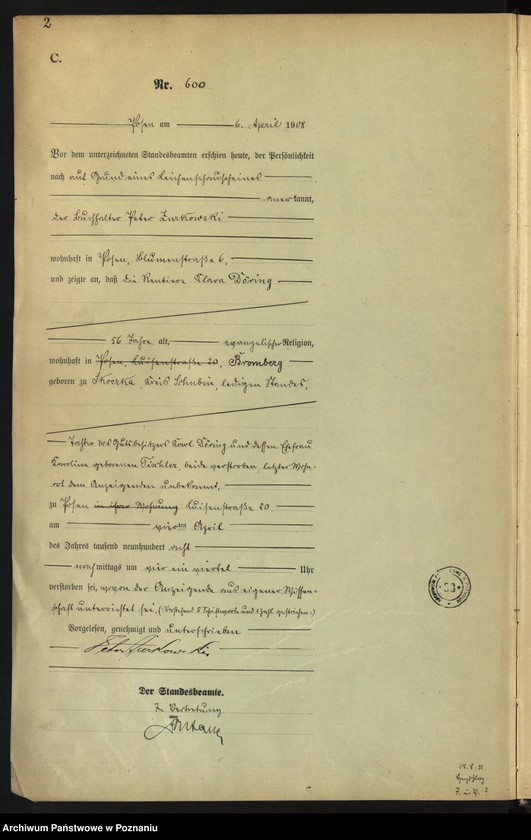 2
C.
Nr. 600
Posen am 6. April 1908
Vor dem unterzeichneten Standesbeamten erschien heute, der Persönlichkeit
nach auf Grund eines Leichenschauscheines
anerkannt,
der Buchhalter Peter Zurkowski
wohnhaft in Posen, Blumenstraße 6,
und zeigte an, daß die Rentiere Klara Döring
56 Jahre alt, evangelischer Religion,
wohnhaft in Posen, Luisenstraße 20, Bromberg
geboren zu Skorzka, Kreis Schubin, ledigen Standes,
Tochter des Gutsbesitzers Karl Döring und dessen Ehefrau
Karoline geborenen Tischler, beide verstorben, letzter Wohn-
ort dem Anzeigenden unbekannt,
zu Posen in ihrer Wohnung Luisenstraße 20.
am vierten April
des Jahres tausend neunhundert acht
nachmittags um vier ein viertel Uhr
verstorben sei, wovon der Anzeigende aus eigener Wissen-
schaft unterrichtet sei. (Vorstehend 5 Schriftworte und 1 Zahl gestrichen.)
Vorgelesen, genehmigt und unterschrieben
Peter Zurkowski
Der Standesbeamte.
In Vertretung
53
Archiwum Państwowe w Poznaniu